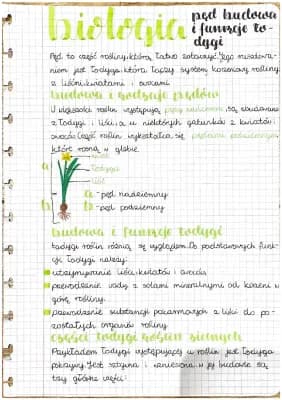 biologia
pęd budowa
i funkcje ło-
dygi
Pęd to część rośliny, którą łatwo zobaczyć. Jego
niem jest łodyga, która łączy system korzeniowy rośliny
z liśćmi, kwiatami i owocami.
budowa i rodzaje pędów
U większości roślin występują pędy nadziemne, są zbudowane
z łodygi i liści, a u niektórych gatunków z kwiatów i
owoców. Część roślin wykształca się pędami podziemnymi,
które rosną w glebie.
kwiat
łodyga
liść
a
b
a - pęd nadziemny
b - pęd podziemny
budowa i funkcje łodygi
Łodygi roślin różnią się wyglądem. Do podstawowych funk-
cji łodygi należą:
utrzymywanie liści, kwiatów i owoców
przewodzenie wody z solami mineralnymi od korzeni w
górę rośliny.
przewodzenie substancji pokarmowych z liści do po-
zostałych organów rośliny.
części łodygi roślin zielnych
Przykładem łodygi występującej u roślin jest łodyga
pokrzywy. Jest sztywna i wzniesiona, w jej budowie są
trzy główne części: